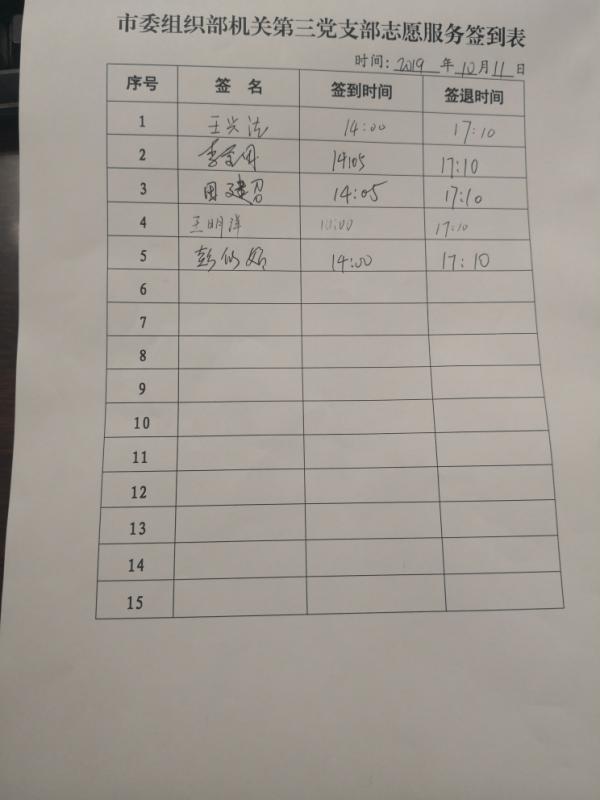 市委组织部机关第三党支部志愿服务签到表
时间：2019 年 10 月 11 日
序号 签 名 签到时间 签退时间
1 王兴法 14:00 17:10
2 14:05 17:10
3 田建召 14:05 17:10
4 王明洋 17:10
5 14:00 17:10
6
7
8
9
10
11
12
13
14
15